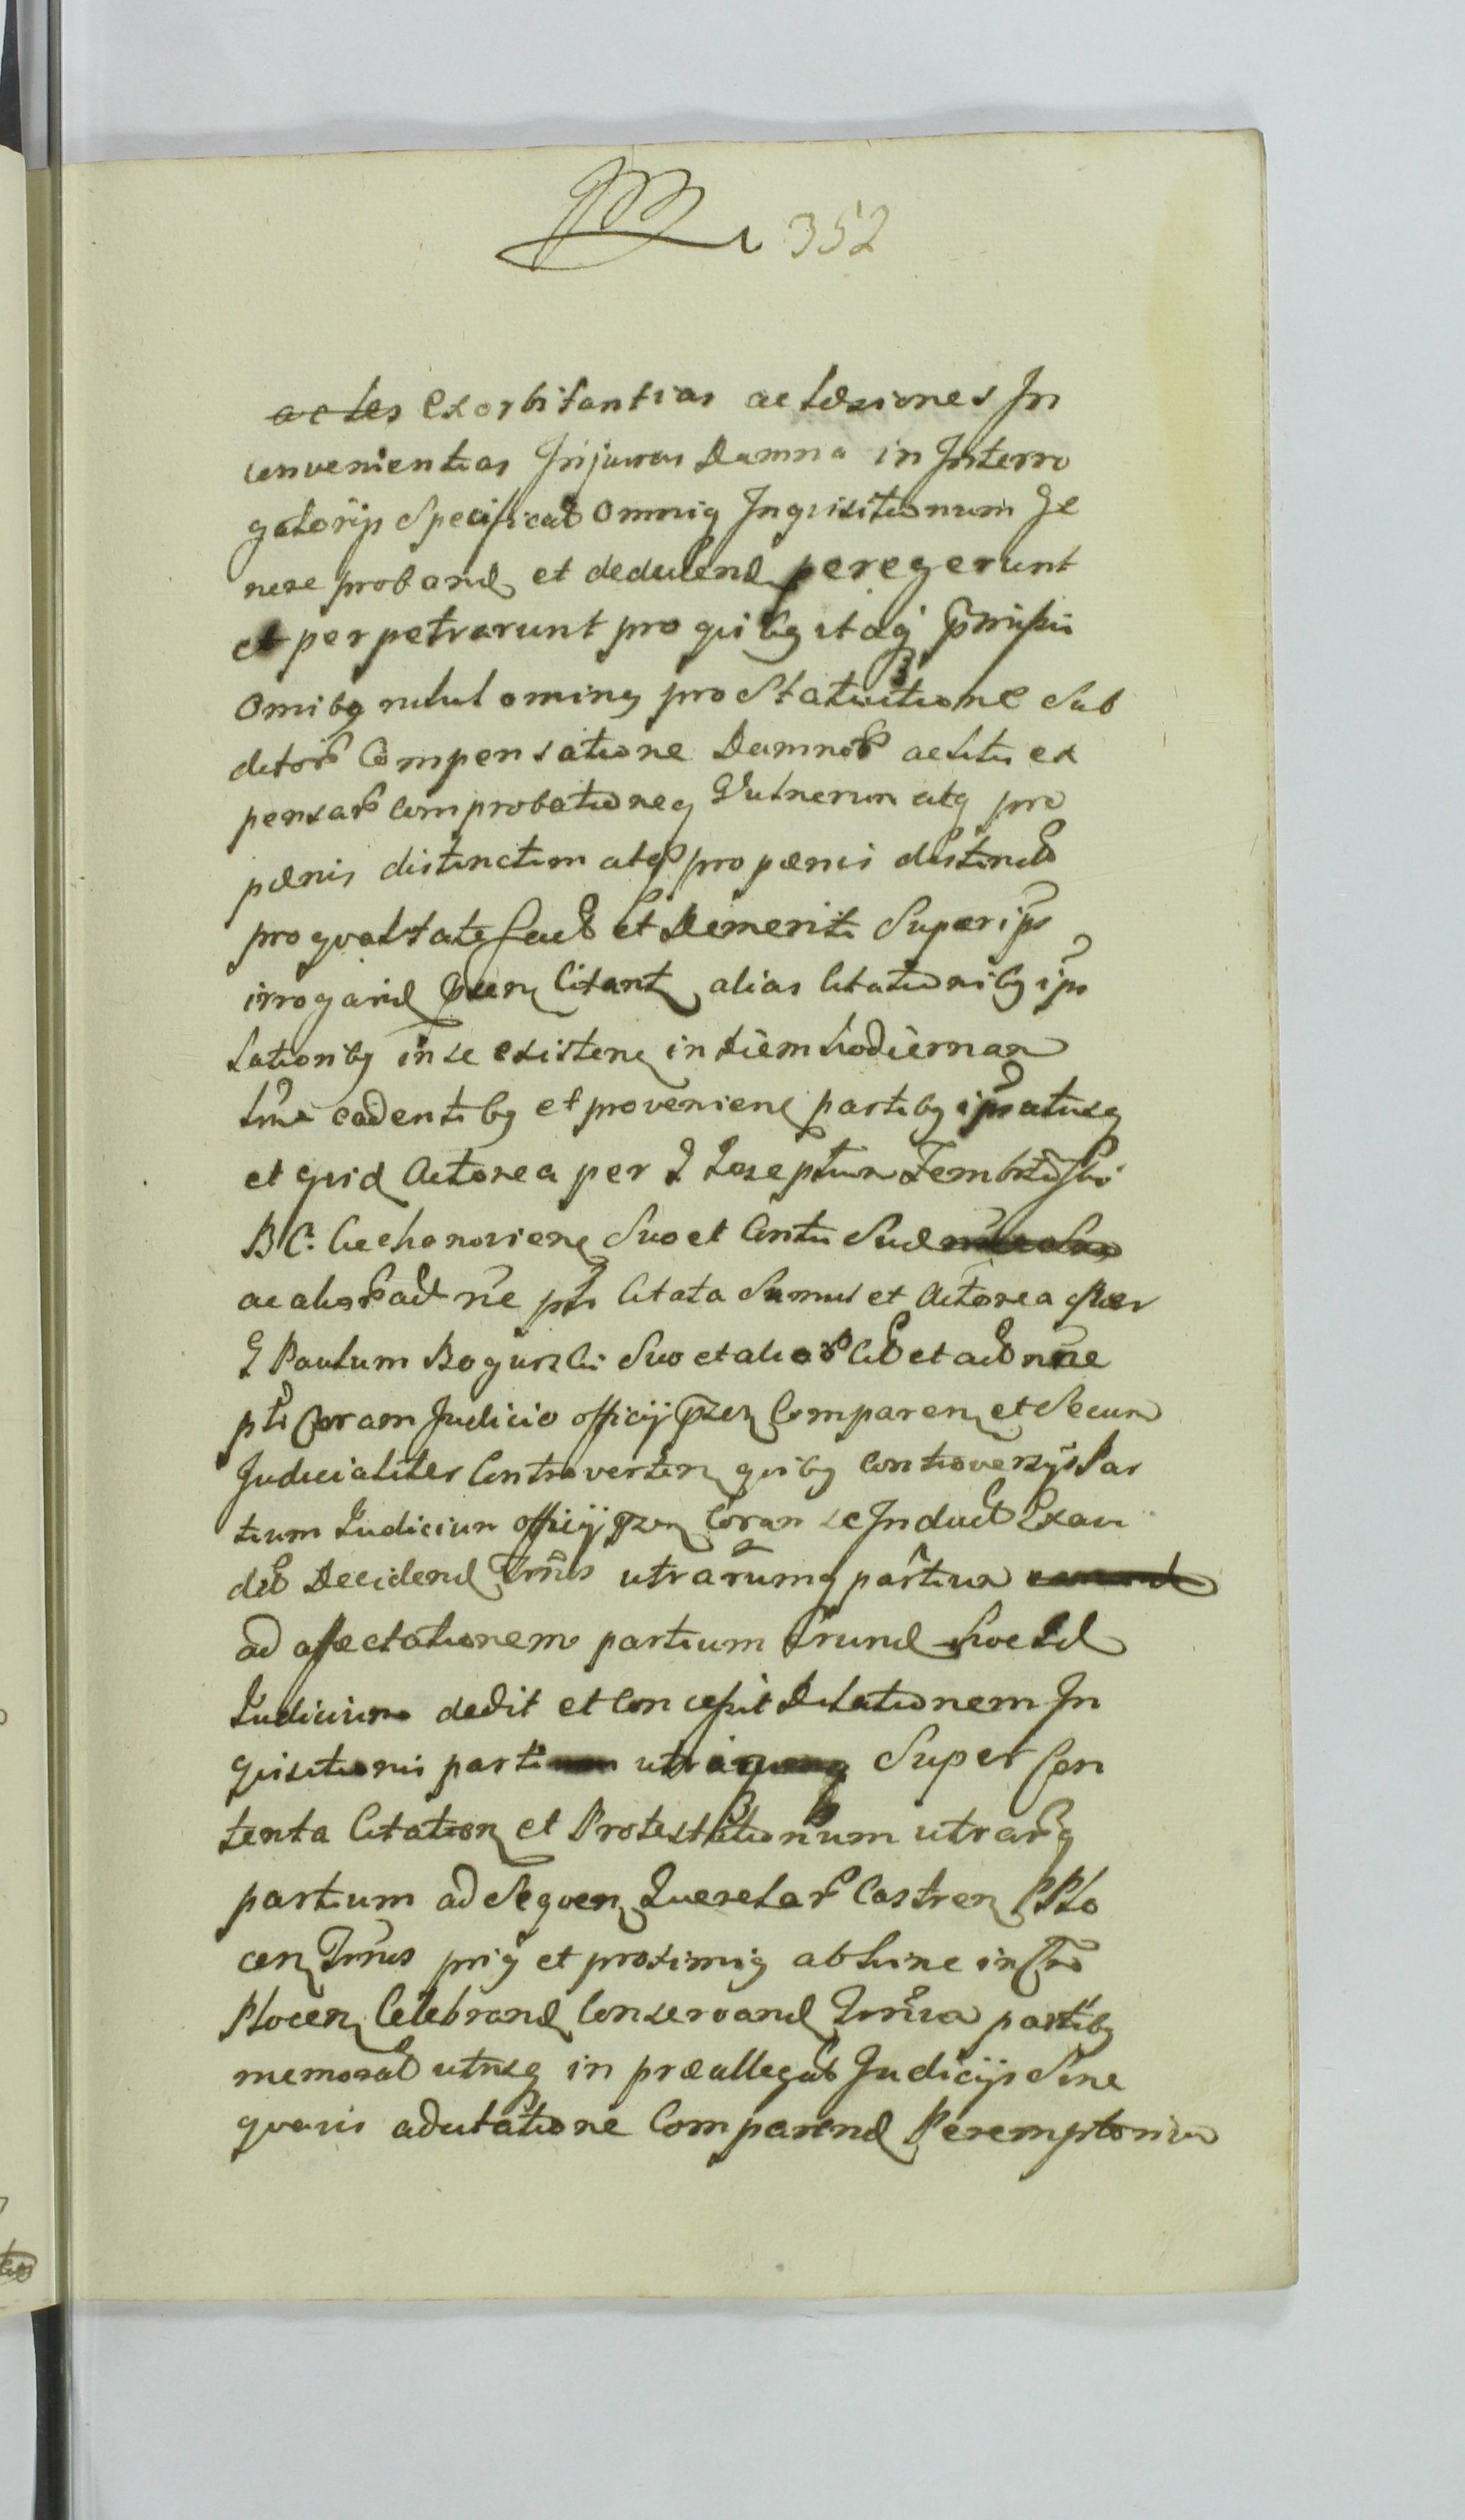 352
ac les exorbitantias ac læsiones In
convenientias Injurias Damna in Interro
gatorijs Specificat omniq Inquisitionum Ge
nere proband et deducend peregerunt
et perpetrarunt pro quibq itaq præmissis
Omibq nihilominq pro Statuitione Sub
ditor Compensatione Damnor ac litis ex
pensar comprobationeq Vulnerum atq pro
pænis distinctim atq pro pænis distinct
pro qualitate fact et Demeriti Super ips
irrogand citant alias Citationibq ips
lationibq in se existen in diem hodiernam
cadentibq et provenien partibq ipsatisq
et quid Actorea per G Josephum
B C. Ciechanovien Suo et Citti Sud
ac alior ad ne pti Citata Simul et Actorea per
G Paulum Bogurski Suo et alior Cit et act ne
pti Coram Judicio officij præsen Comparen et Secum
Judicialiter Controverten quibq controversijs Par
tium Judicium officij præsen Coram se Induct Exau
dit Decidend Trnis utrarumq partium
ad affectationem partium
Judicium dedit et Concessit Dilationem In
quisitionis parti Super Con
tenta Citation et Protestationum utrarq
partium ad Sequen Querelar Castren Plo
cen Trnis priq et proximiq abhinc in Cro
Plocen Celebrand Conservand Trnum partibq
memorat utrisq in præallegat Judicijs Sine
quavis adcitatione Comparend Peremptorium